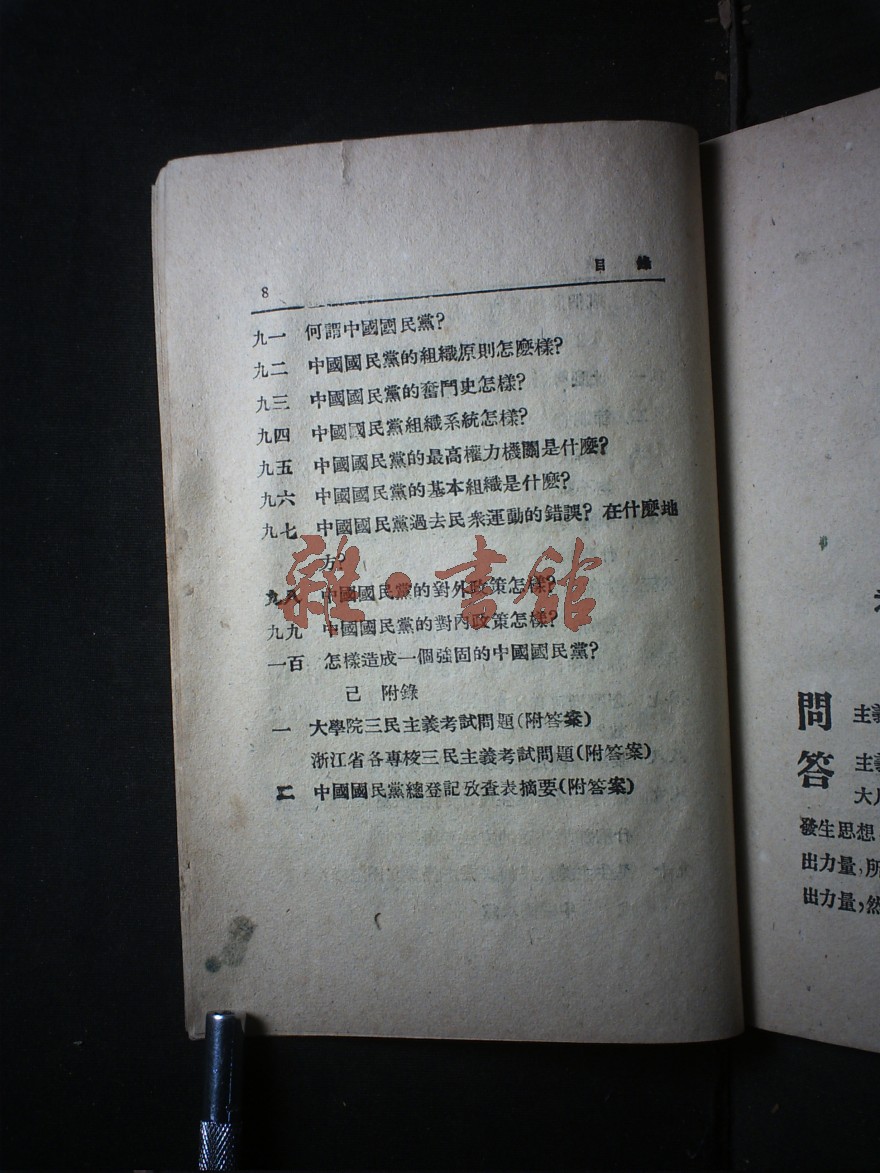 8 目錄
九一 何謂中國國民黨?
九二 中國國民黨的組織原則怎麼樣?
九三 中國國民黨的奮鬥史怎樣?
九四 中國國民黨組織系統怎樣?
九五 中國國民黨的最高權力機關是什麼?
九六 中國國民黨的基本組織是什麼?
九七 中國國民黨過去民衆運動的錯誤?在什麼地
方?
九八 中國國民黨的對外政策怎樣?
九九 中國國民黨的對內政策怎樣?
一百 怎樣造成一個強固的中國國民黨?
己 附錄
一 大學院三民主義考試問題(附答案)
浙江省各專校三民主義考試問題(附答案)
二 中國國民黨總登記攷查表摘要(附答案)
雜·書館
問 主義
答 主義
大凡
發生思想
出力量,所
出力量,然